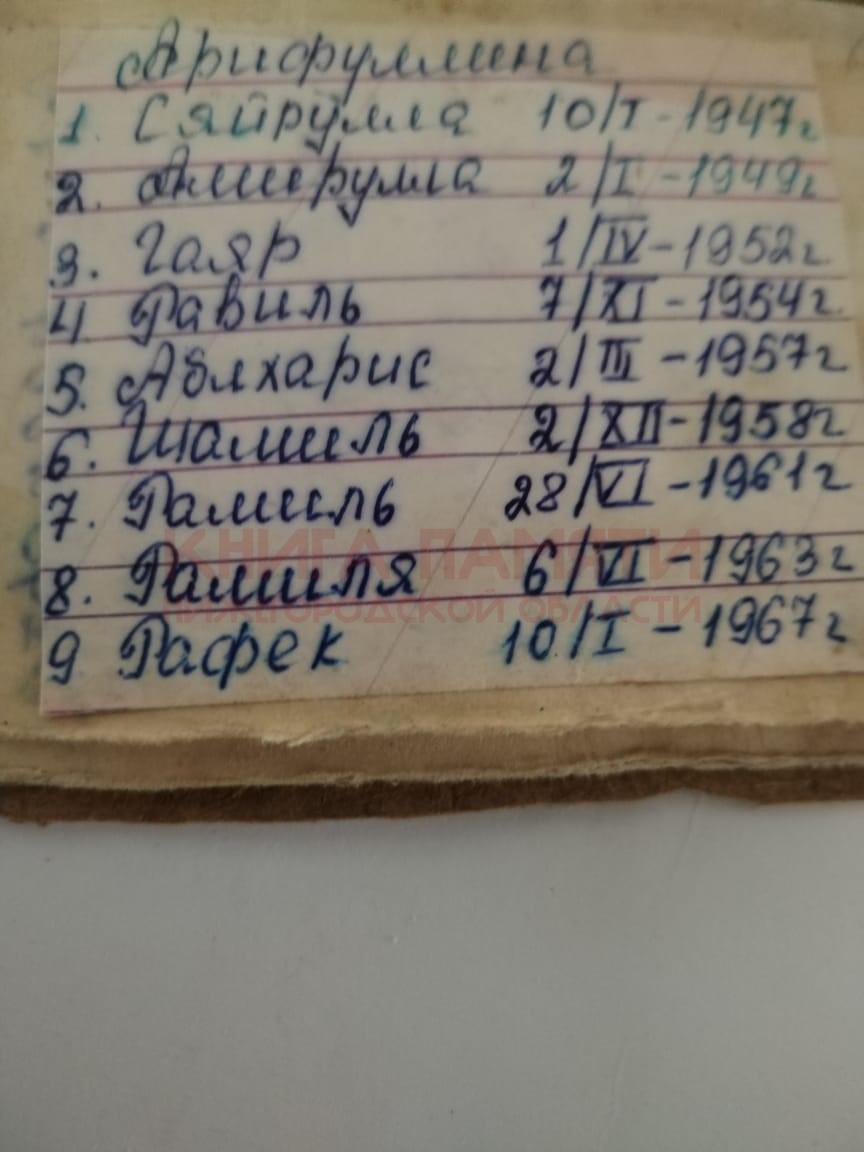 Арифуллина
1. Сяйрулла 10/I - 1947г
2. Амирулла 2/I - 1949г
3. Гаяр 1/IV - 1952г
4 Равиль 7/XI - 1954г.
5. Абляхарис 2/III - 1957г
6. Шамиль 2/XII - 1958г
7. Рамиль 28/VI - 1961г
КНИГА ПАМЯТИ
8. Рамиля 6/VI - 1963г
НИЖЕГОРОДСКОЙ ОБЛАСТИ
9 Рафек 10/I - 1967г